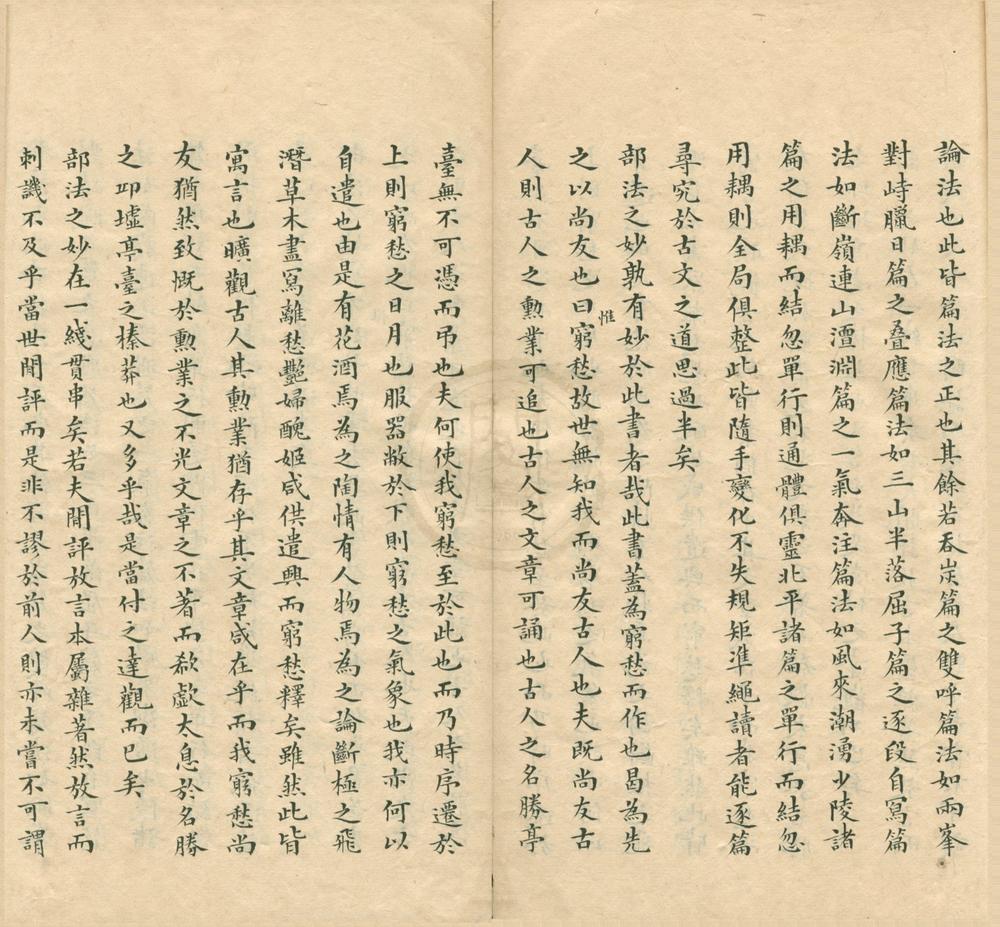 論法也此皆篇法之正也其餘若吞炭篇之雙呼篇法如兩峯
對峙臘日篇之叠應篇法如三山半落屈子篇之逐段自寫篇
法如斷嶺連山澶淵篇之一氣奔注篇法如風來潮湧少陵諸
篇之用耦而結忽單行則通體俱靈北平諸篇之單行而結忽
用耦則全局俱整此皆隨手變化不失規矩準繩讀者能逐篇
尋究於古文之道思過半矣
部法之妙孰有妙於此書者哉此書蓋為窮愁而作也曷為先
之以尚友也曰惟窮愁故世無知我而尚友古人也夫既尚友古
人則古人之勲業可追也古人之文章可誦也古人之名勝亭
臺無不可憑而吊也夫何使我窮愁至於此也而乃時序遷於
上則窮愁之日月也服器敝於下則窮愁之氣象也我亦何以
自遣也由是有花酒焉為之陶情有人物焉為之論斷極之飛
潛草木盡寫離愁艷婦醜姬咸供遣興而窮愁釋矣雖然此皆
寓言也曠觀古人其勲業猶存乎其文章咸在乎而我窮愁尚
友猶然致慨於勲業之不光文章之不著而欷歔太息於名勝
之邱墟亭臺之榛莽也又多乎哉是當付之達觀而已矣
部法之妙在一綫貫串矣若夫閒評放言本屬雜著然放言而
刺譏不及乎當世閒評而是非不謬於前人則亦未嘗不可謂